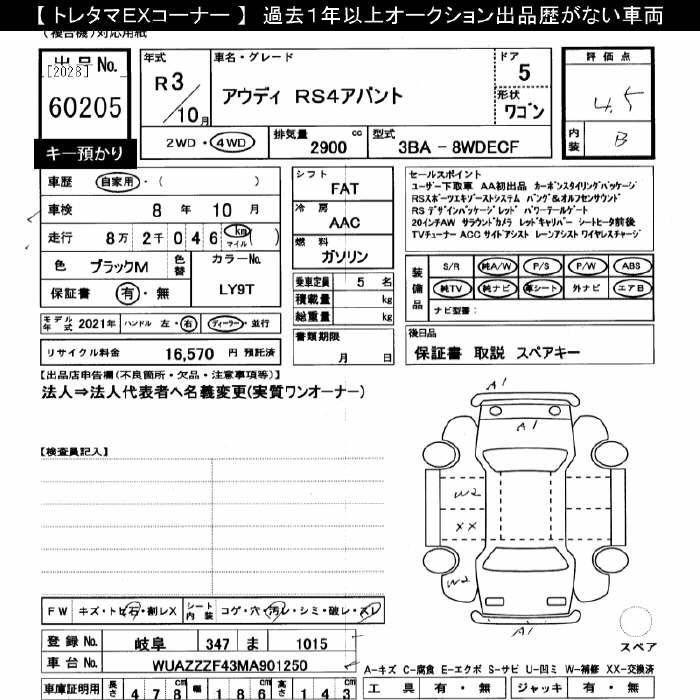 【 トレタマEXコーナー 】 過去1年以上オークション出品歴がない車両
(複合機)対応用紙
出品No.
[2028]
60205
キー預かり
年式
R3
10月
車名・グレード
アウディ RS4アバント
ドア
5
形状
ワゴン
評価点
4.5
内装
B
2WD・4WD
排気量
2900 cc
型式
3BA - 8WDECF
車歴 自家用・( )
車検 8 年 10 月
走行 8万 2千 0 4 6 km マイル ( )
色 ブラックM 色替 カラーNo.
LY9T
保証書 有・無
シフト
FAT
冷房
AAC
燃料
ガソリン
乗車定員 5 名
積載量 kg
総重量 kg
書類期限
月 日
セールスポイント
ユーザー下取車 AA初出品 カーボンスタイリングパッケージ
RSスポーツエキゾーストシステム バング&オルフセンサウンド
RSデザインパッケージレッド パワーテールゲート
20インチAW サラウンドカメラ レッドキャリパー シートヒータ前後
TVチューナー ACC サイドアシスト レーンアシスト ワイヤレスチャージ
装備品
S/R 純A/W P/S P/W ABS
純TV 純ナビ 革シート 外ナビ エアB
ナビ型番:
モデル年式 2021年 ハンドル 左・右 ディーラー・並行
リサイクル料金 16,570 円 預託済
後日品
保証書 取説 スペアキー
【出品店申告欄(不良箇所・欠品・注意事項等)】
法人⇒法人代表者へ名義変更(実質ワンオーナー)
【検査員記入】
A1
A1
W2
XX
W2
A1
スペア
FW キズ・トビ石・割レX シート内装 コゲ・穴・汚レ・シミ・破レ・スレ
登録No. 岐阜 347 ま 1015
車台No. WUAZZZF43MA901250
A-キズ C-腐食 E-エクボ S-サビ U-凹ミ W-補修 XX-交換済
車庫証明用 長さ 4 7 8 cm 幅 1 8 6 cm 高さ 1 4 3 cm
工具 有・無 ジャッキ 有・無